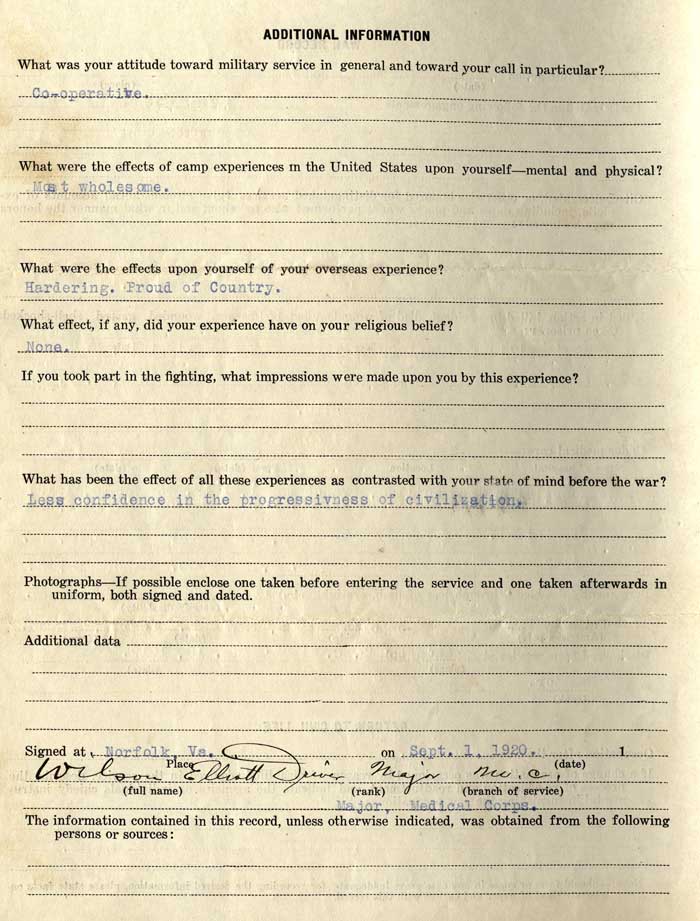 ADDITIONAL INFORMATION
What was your attitude toward military service in general and toward your call in particular?
Co-operative.
What were the effects of camp experiences in the United States upon yourself—mental and physical?
Most wholesome.
What were the effects upon yourself of your overseas experience?
Hardering. Proud of Country.
What effect, if any, did your experience have on your religious belief?
None.
If you took part in the fighting, what impressions were made upon you by this experience?
What has been the effect of all these experiences as contrasted with your state of mind before the war?
Less confidence in the progressivness of civilization.
Photographs—If possible enclose one taken before entering the service and one taken afterwards in
uniform, both signed and dated.
Additional data
Signed at Norfolk, Va. on Sept. 1, 1920. 1
Place (date)
Wilson Elliott Driver Major M. C.
(full name) (rank) (branch of service)
Major, Medical Corps.
The information contained in this record, unless otherwise indicated, was obtained from the following
persons or sources: